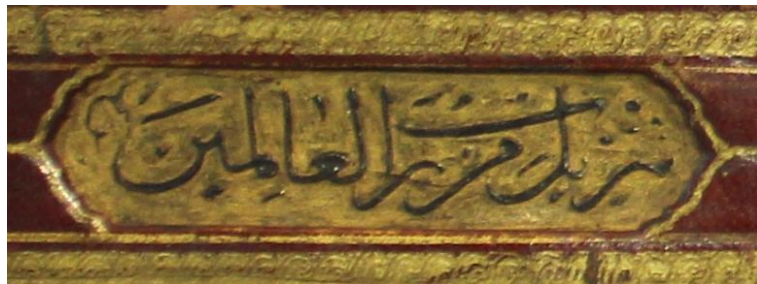 تنزيل من رب العالمين